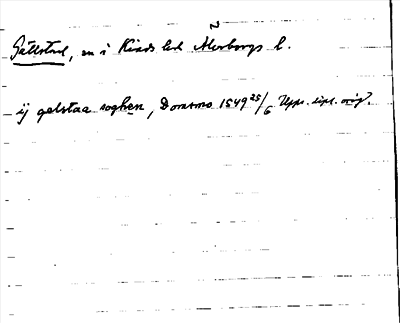 Gällstad, sn i Kinds hd Älvsborgs l.
ij gelstaa soghen, Domsmo 1549 25/6 Upps. dipl. orig.